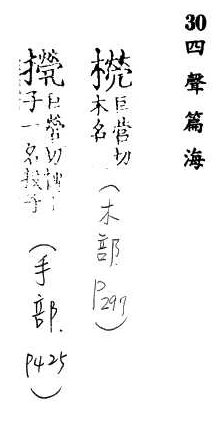 30 四聲篇海
巨营切
木名
(木部. P297)
巨營切博
子一名投子
(手部. P425)